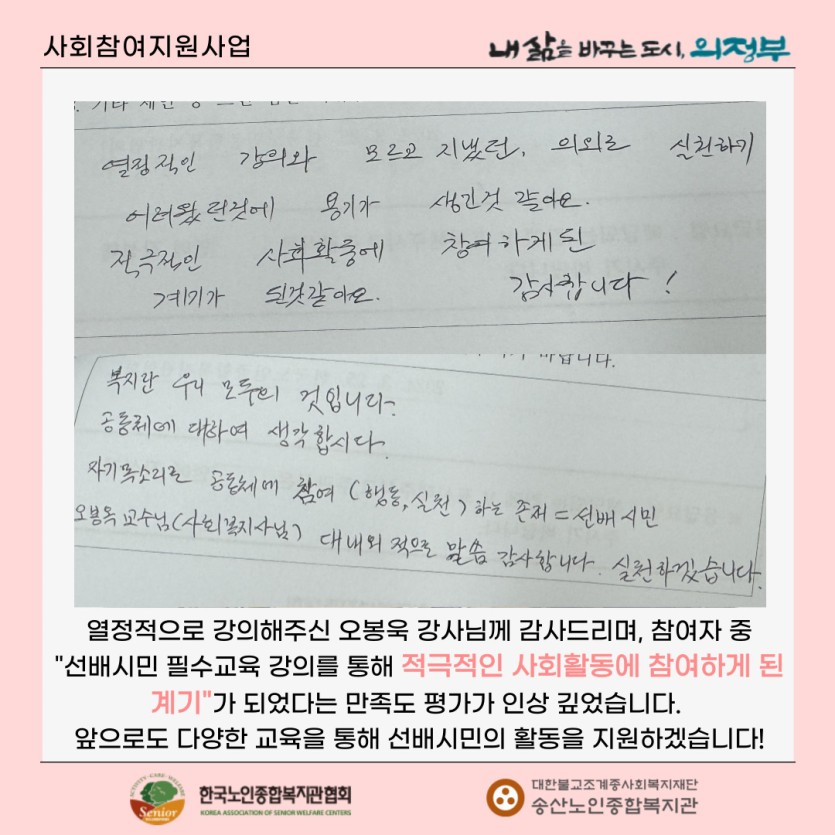 사회참여지원사업
내 삶을 바꾸는 도시, 의정부
열정적인 강의와 모르고 지냈던, 의외로 실천하기
어려웠던것에 용기가 생긴것 같아요.
적극적인 사회활동에 참여하게 된
계기가 된것같아요. 감사합니다!
바랍니다.
복지란 우리 모두의 것입니다.
공동체에 대하여 생각합시다.
자기목소리로 공동체에 참여(행동,실천)하는 존재=선배시민
오봉욱 교수님(사회복지사님) 대내외적으로 말씀 감사합니다. 실천하겠습니다.
열정적으로 강의해주신 오봉욱 강사님께 감사드리며, 참여자 중
"선배시민 필수교육 강의를 통해 적극적인 사회활동에 참여하게 된
계기"가 되었다는 만족도 평가가 인상 깊었습니다.
앞으로도 다양한 교육을 통해 선배시민의 활동을 지원하겠습니다!
ACTIVITY · CARE · WELFARE
Senior
한국노인종합복지관협회
KOREA ASSOCIATION OF SENIOR WELFARE CENTERS
대한불교조계종사회복지재단
송산노인종합복지관